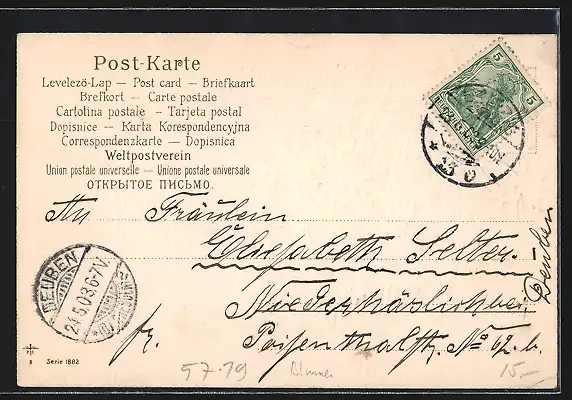 Post-Karte
Levelező-Lap — Post card — Briefkaart
Brefkort — Carte postale
Cartolina postale — Tarjeta postal
Dopisnice — Karta Korespondencyjna
Correspondenzkarte — Dopisnica
Weltpostverein
Union postale universelle — Unione postale universale
ОТКРЫТОЕ ПИСЬМО.
5 5
An Fräulein
Elisabeth Selter
Deuben
Niederhäslich
DEUBEN
24.5.03.6-7V.
fr. Poisenthalstr. No 62. b.
8 Serie 1882
57.19 Blumen 15.-